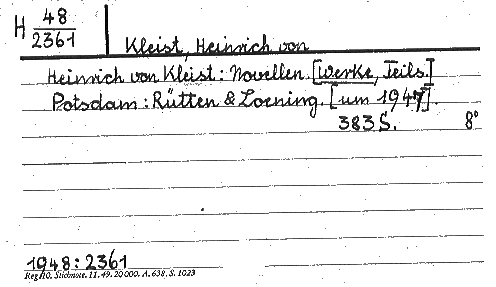 H 48
2361
Kleist, Heinrich von
Heinrich von Kleist: Novellen. [Werke, Teils.]
Potsdam: Rütten & Loening. [um 1947].
383 S. 8°
1948: 2361
Reg 10. Südnote. 11. 49. 20000. A. 638. S. 1023